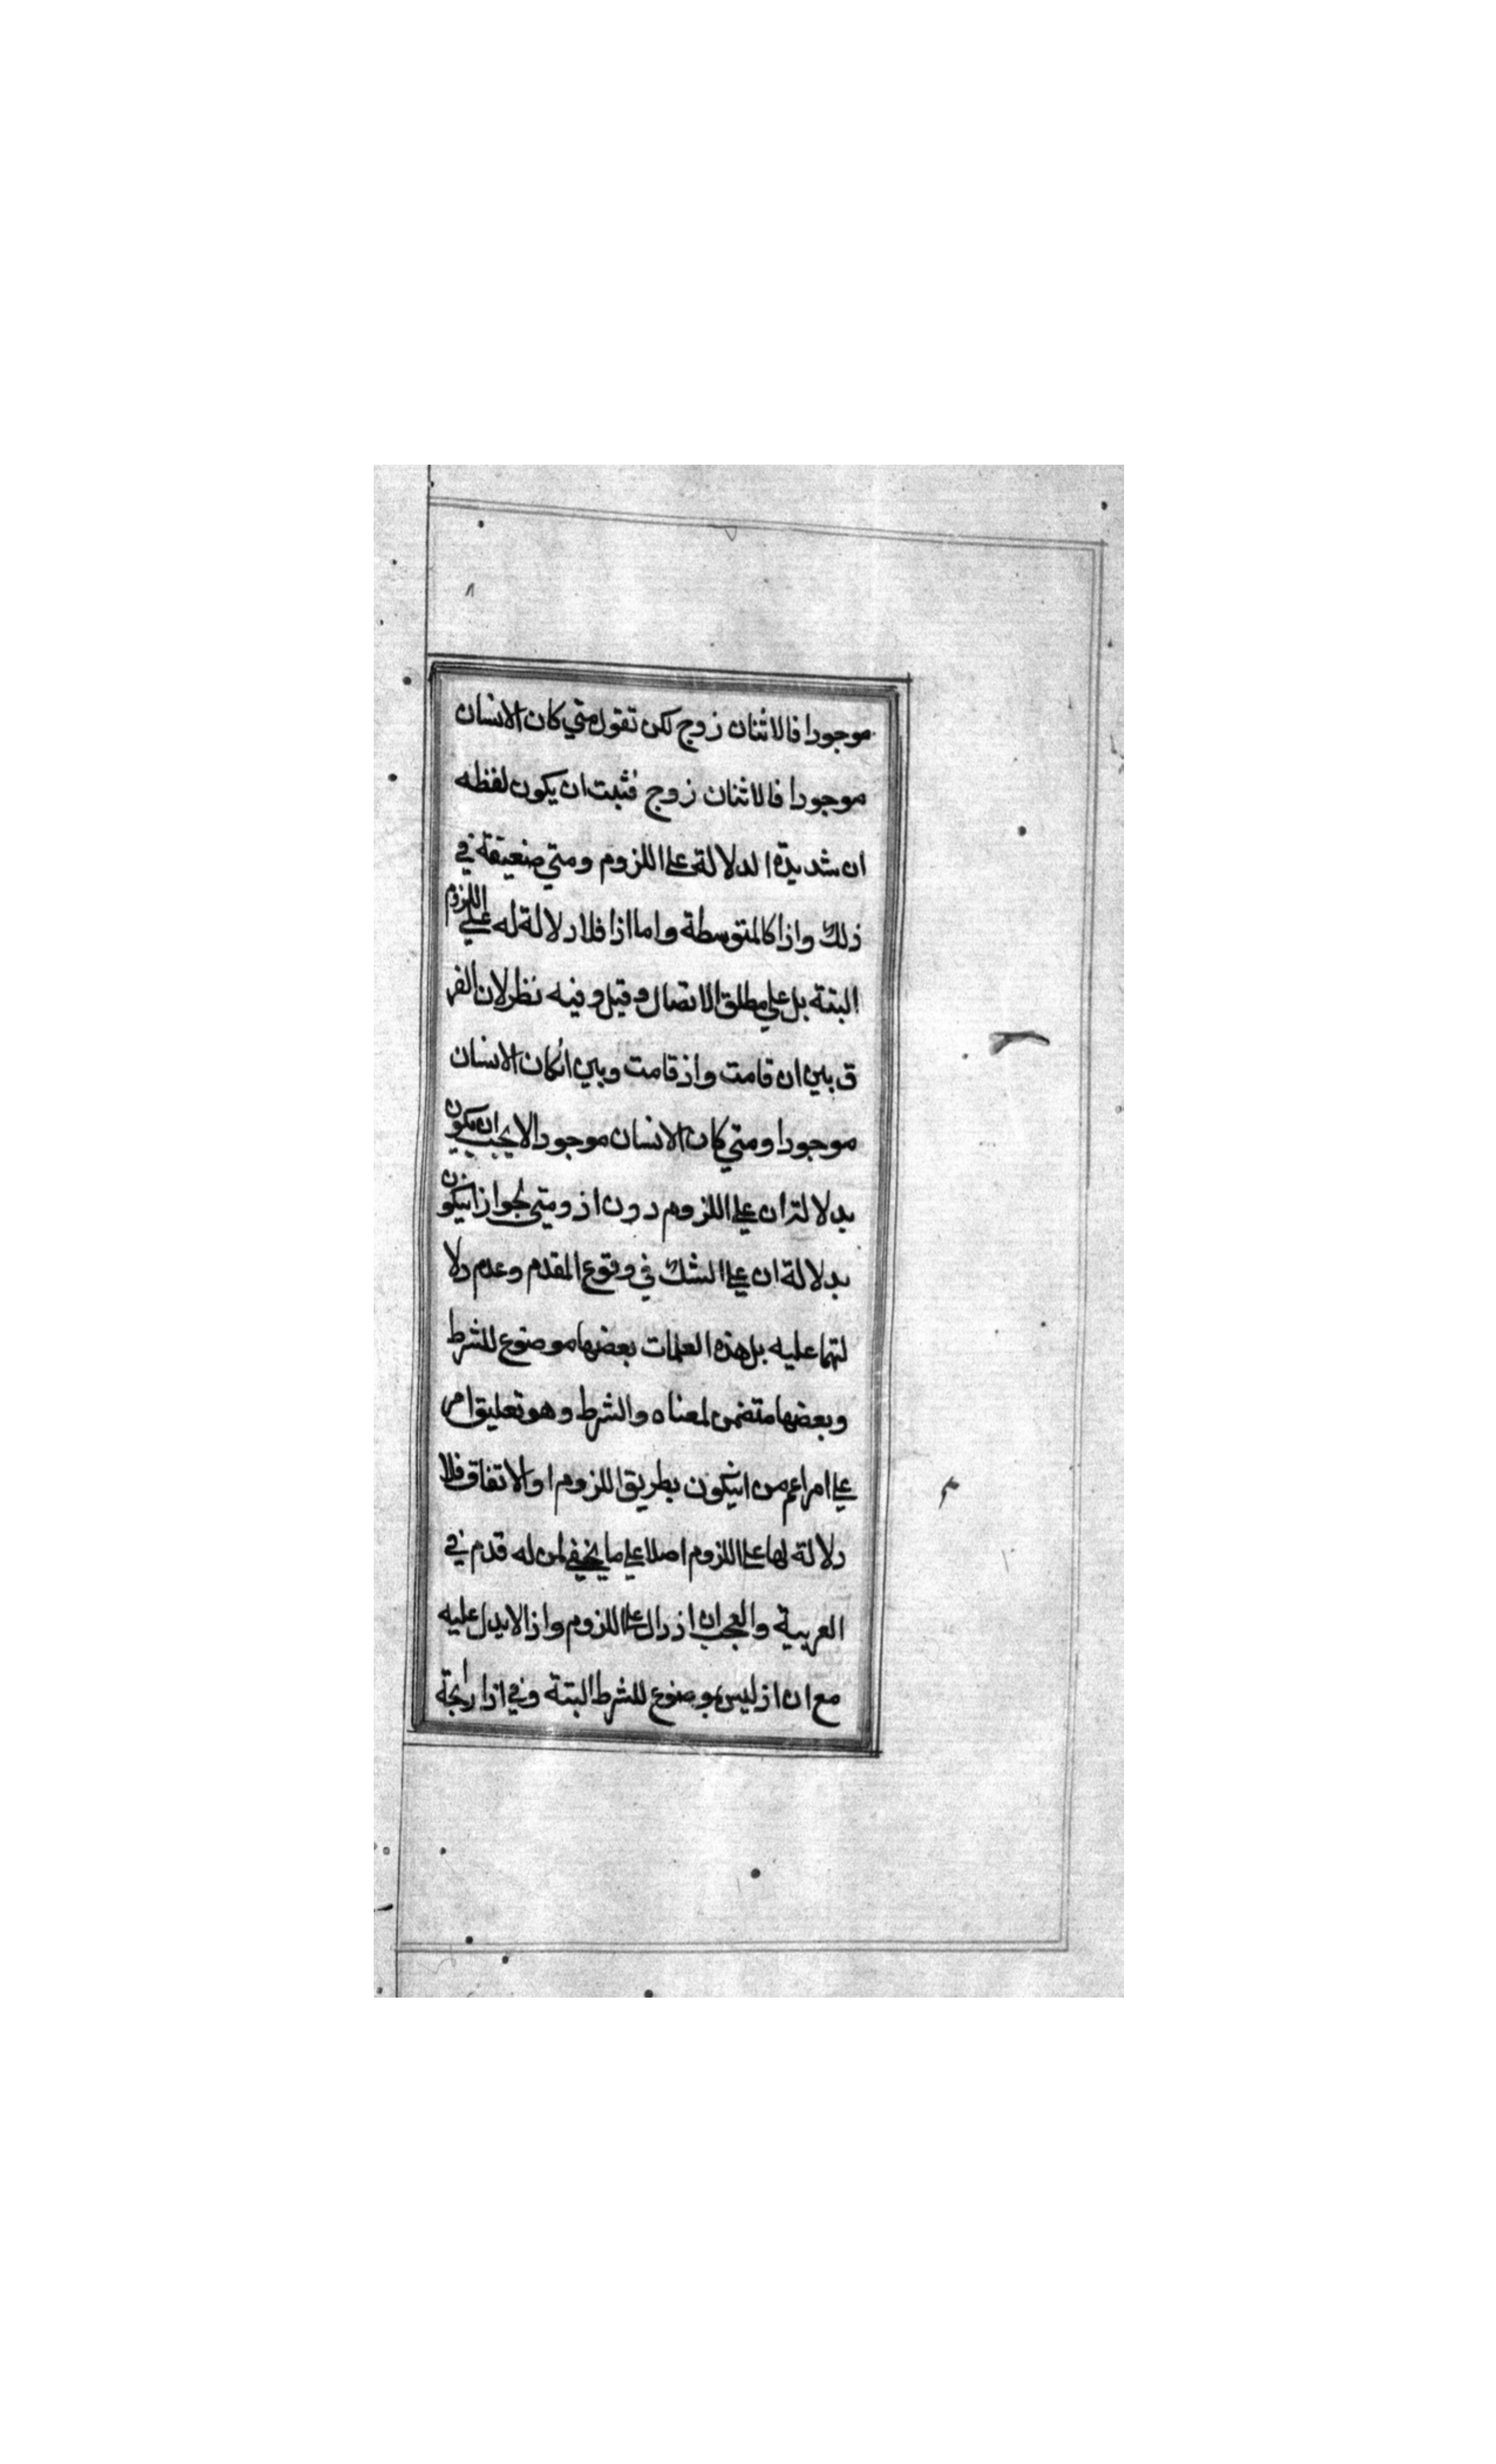 موجودا فالاثنان زوج لكن تقول متي كان الانسان
موجودا فالاثنان زوج فثبت ان يكون لفظه
ان شديدة الدلالة علي اللزوم ومتي ضعيفة في
ذلك واذا كالمتوسطة واما اذا فلا دلالة له علي اللزوم
البتة بل علي مطلق الاتصال وقيل وفيه نظر لان الفر
ق بين ان قامت واذ قامت وبين انكان الانسان
موجودا ومتي كان الانسان موجودا لا يجب ان يكون
بدلالة ان علي اللزوم دون اذ ومتي لجواز انيكون
بدلالة ان علي الشك في وقوع المقدم وعدم دلا
لتهما عليه بل هذه الكلمات بعضها موضوع للشرط
وبعضها متضمن لمعناه والشرط وهو تعليق امر
علي امر اعم من انيكون بطريق اللزوم او الاتفاق فلا
دلالة لها علي اللزوم اصلا علي ما يخفي لمن له قدم في
العربية والعجب ان اذ دال علي اللزوم واذا لا يدل عليه
مع ان اذ ليس بموضوع للشرط البتة وفي اذا رائجة